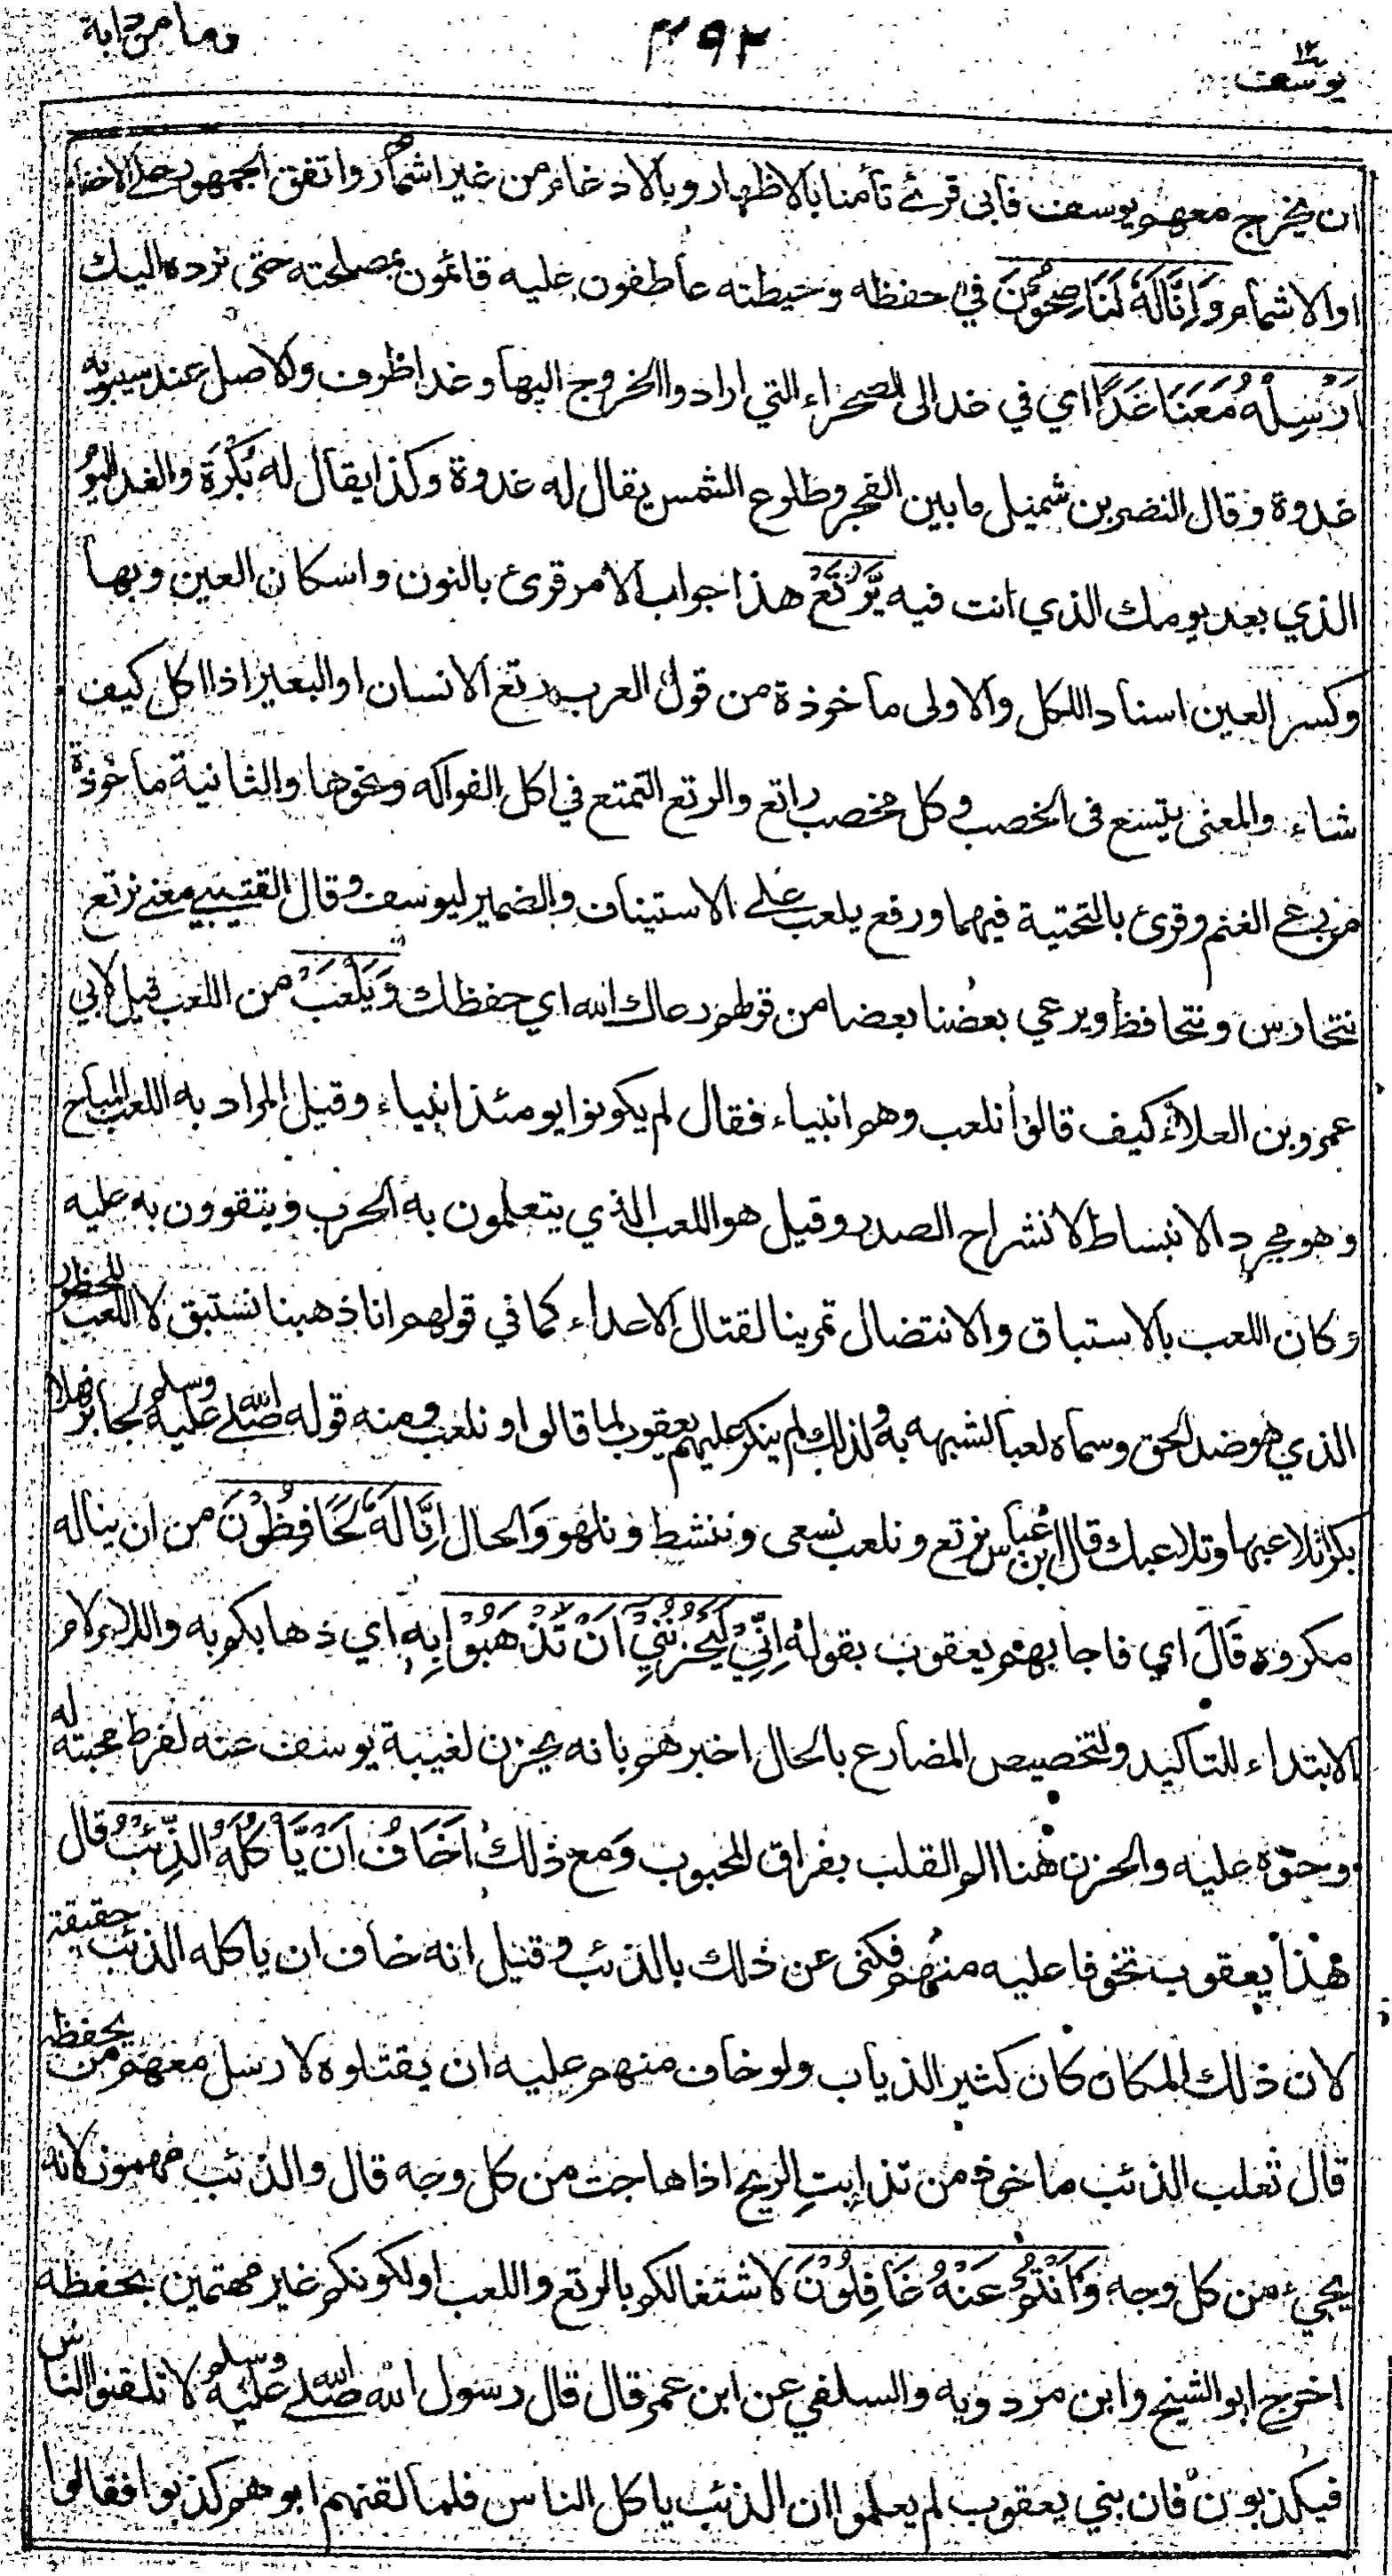 وما من دابة
٣٩٢
١٢
يوسف
ان يخرج معهم يوسف فابى قرئ تأمنا بالاظهار وبالادغام من غير اشمام واتفق الجمهور على الاخفاء
اوالاشمام وَاِنَّا لَهٗ لَنَاصِحُوْنَ في حفظه وحيطته عاطفون عليه قائمون بمصلحته حتى نرده اليك
اَرْسِلْهُ مَعَنَا غَدًا اي في غد الى الصحراء التي ارادوا الخروج اليها وغدا ظرف والاصل عند سيبويه
غدوة وقال النضر بن شميل ما بين الفجر وطلوع الشمس يقال له غدوة وكذا يقال له بُكْرَة والغد اليوم
الذي بعد يومك الذي انت فيه يَّرْتَعْ هذا جواب الامر قرئ بالنون واسكان العين وبها
وكسر العين اسنادا للكل والاولى ماخوذة من قول العرب رتع الانسان او البعير اذا اكل كيف
شاء والمعنى يتسع فى الخصب وكل مخصب راتع والرتع التمتع في اكل الفواكه ونحوها والثانية ماخوذة
من رعي الغنم وقرئ بالتحتية فيهما ورفع يلعب على الاستيناف والضمير ليوسف وقال القتيبي معنى نرتع
نتحارس ونتحافظ ويرعي بعضنا بعضا من قولهم رعاك الله اي حفظك وَيَلْعَبْ من اللعب قيل لابي
عمرو بن العلاء كيف قالوا نلعب وهم انبياء فقال لم يكونوا يومئذ انبياء وقيل المراد به اللعب المباح
وهو مجرد الانبساط لانشراح الصدر وقيل هو اللعب الذي يتعلمون به الحرب ويتقوون به عليه
وكان اللعب بالاستباق والانتضال تمرينا لقتال الاعداء كما في قولهم انا ذهبنا نستبق لا اللعب المحظور
الذي هو ضد الحق وسماه لعبا لشبهه به ولذلك لم ينكر عليهم يعقوب لما قالوا ونلعب ومنه قوله صلى الله عليه وسلم لجابر فهلا
بكرا تلاعبها وتلاعبك قال ابن عباس نرتع ونلعب نسعى وننشط ونلهو وَالحال اِنَّا لَهٗ لَحَافِظُوْنَ من ان يناله
مكروه قَالَ اي فاجابهم يعقوب بقوله اِنِّيْ لَيَحْزُنُنِيْٓ اَنْ تَذْهَبُوْا بِهٖ اي ذهابكم به واللام لام
الابتداء للتاكيد ولتخصيص المضارع بالحال اخبرهم بانه يحزن لغيبة يوسف عنه لفرط محبته له
وحنوه عليه والحزن هنا الم القلب بفراق المحبوب وَمع ذلك اَخَافُ اَنْ يَّاْكُلَهُ الذِّئْبُ قال
هذا يعقوب تخوفا عليه منهم فكنى عن ذلك بالذئب وقيل انه خاف ان ياكله الذئب حقيقة
لان ذلك المكان كان كثير الذياب ولو خاف منهم عليه ان يقتلوه لارسل معهم من يحفظه
قال ثعلب الذئب ماخوذ من تذايبت الريح اذا هاجت من كل وجه قال والذئب مهموز لانه
يجيء من كل وجه وَاَنْتُمْ عَنْهُ غَافِلُوْنَ لاشتغالكم بالرتع واللعب او لكونكم غير مهتمين بحفظه
اخرج ابو الشيخ وابن مردويه والسلفي عن ابن عمر قال قال رسول الله صلى الله عليه وسلم لا تلقنوا الناس
فيكذبون فان بني يعقوب لم يعلموا ان الذئب ياكل الناس فلما لقنهم ابوهم كذبوا فقالوا